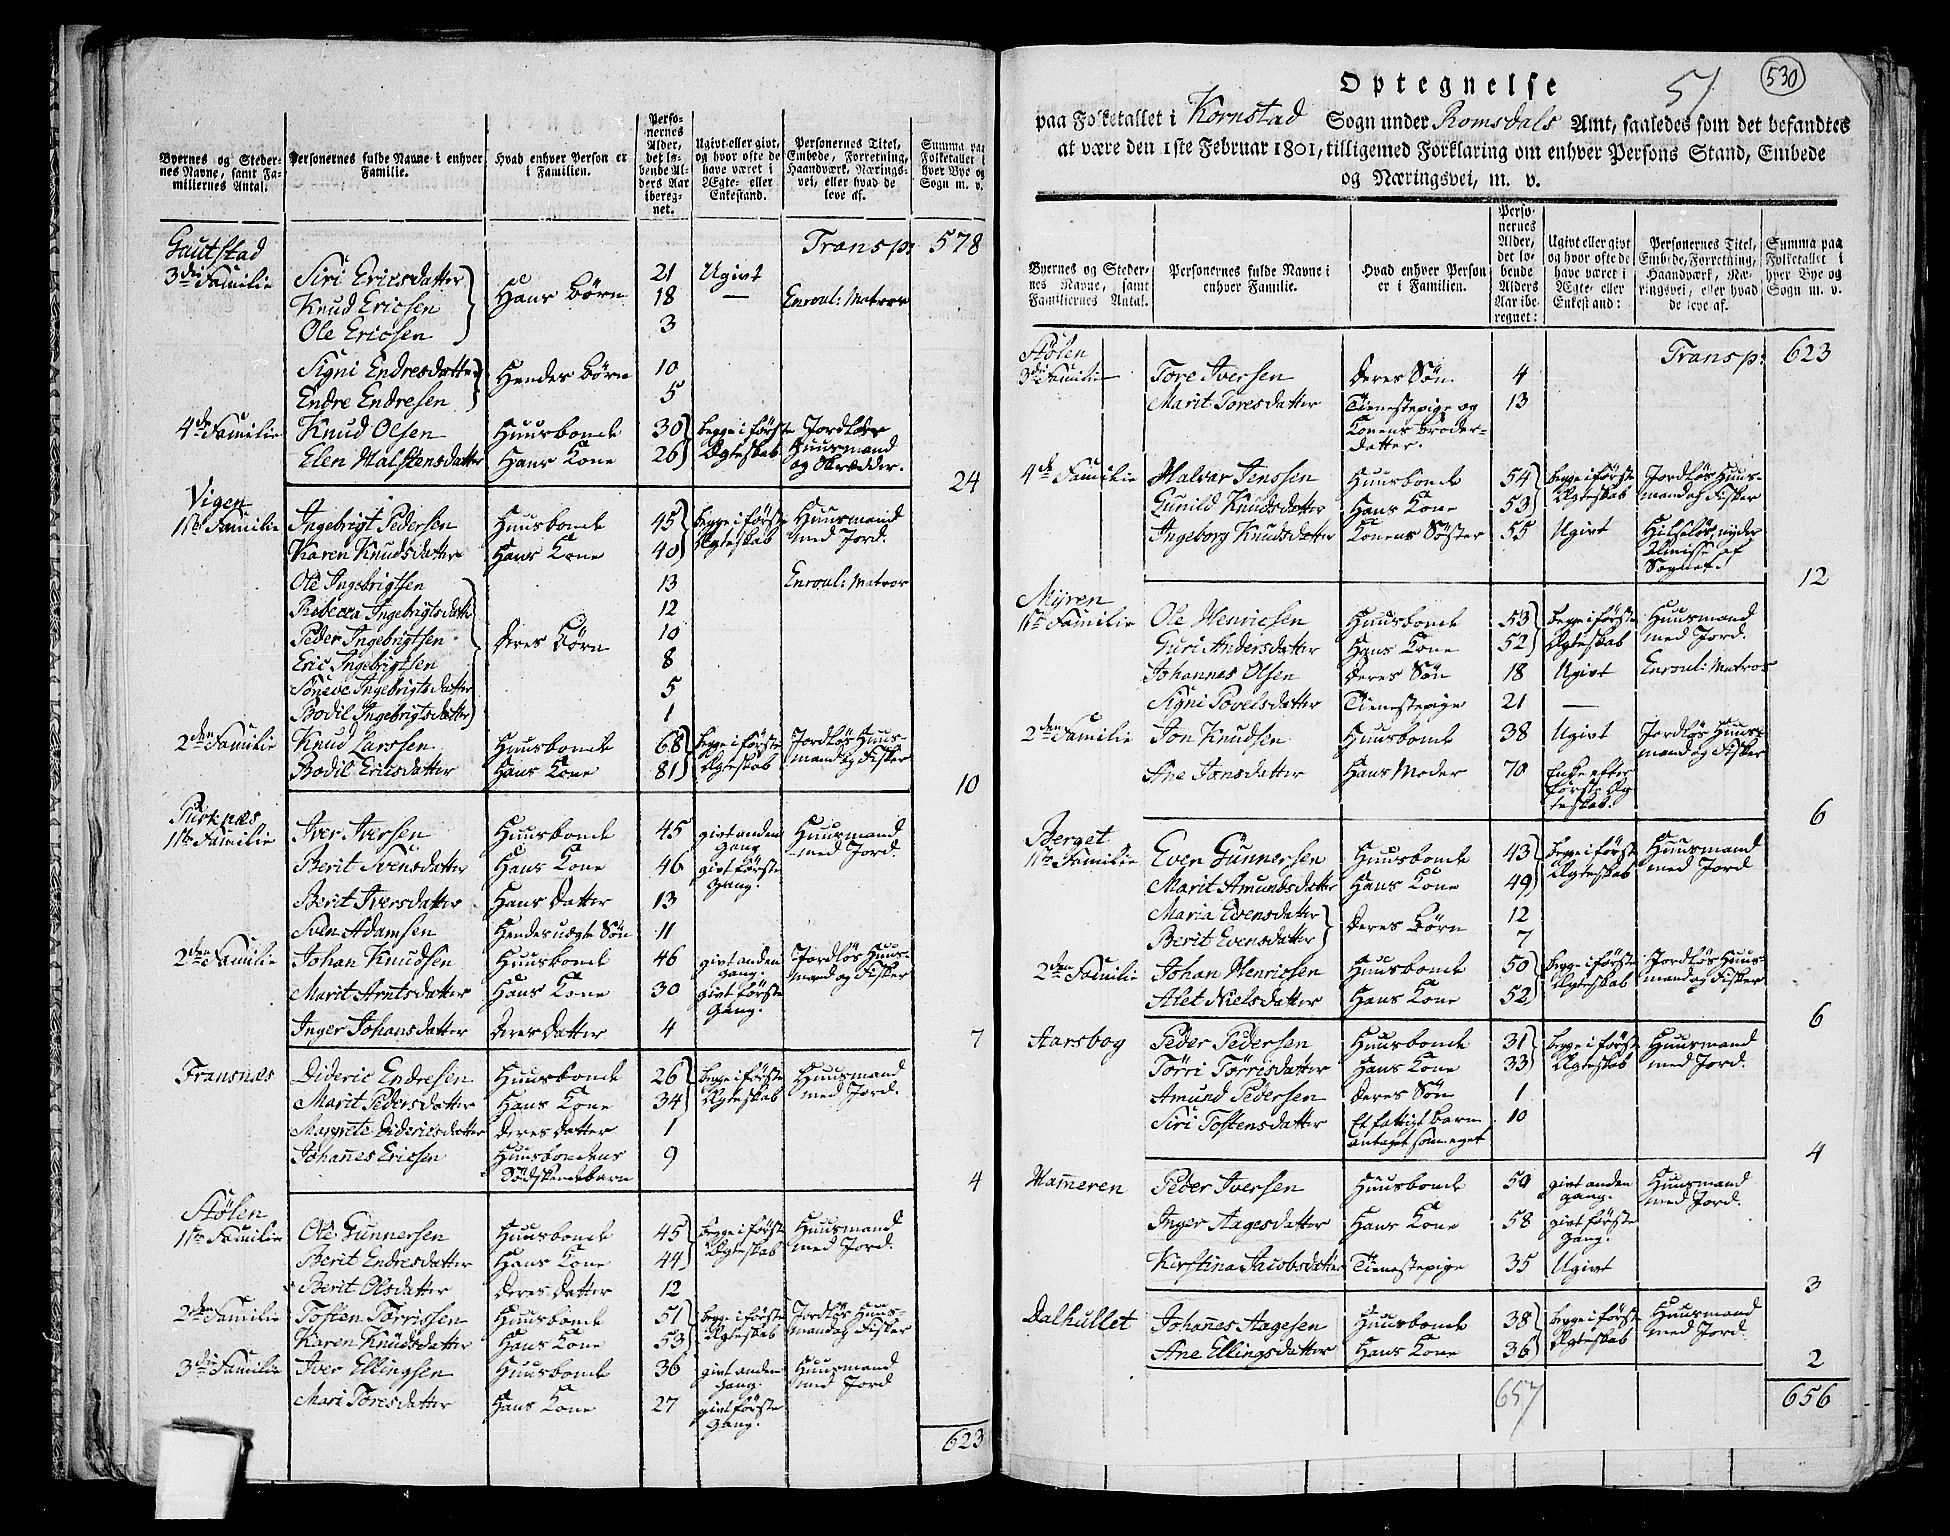 Byernes og Steder-
nes Navne, samt Fa-
miliernes Antal.
Personernes fulde Navne i enhver
Familie.
Hvad enhver Person er
i Familien.
Perso-
nernes
Alder,
det lø-
bende Al-
ders Aar
ibereg-
net.
Ugivt eller givt,
og hvor ofte de
have været i
Ægte- eller
Enkestand.
Personernes Titel,
Embede, Forretning,
Haandværk, Nærings-
vei, eller hvad de
leve af.
Summa paa
Folketallet i
hver Bye og
Sogn m. v.
Gautstad Transp: 578
3die Familie Siri Ericsdatter Hans Børn 21 Ugivt
Knud Ericsen 18 — Enroul: Matros
Ole Ericsen 3
Signi Endresdatter Hendes Børn 10
Endre Endresen 5
4de Familie Knud Olsen Huusbonde 30 begge i første Jordløs
Elen Halstensdatter Hans Kone 26 Ægteskab Huusmand
og Skrædder. 24
Vigen
1ste Familie Ingebrigt Pedersen Huusbonde 45 begge i første Huusmand
Karen Knudsdatter Hans Kone 40 Ægteskab med Jord.
Ole Ingebrigtsen Deres Børn 13 Enroul: Matros
Rebecca Ingebrigtsdatter 12
Peder Ingebrigtsen 10
Eric Ingebrigtsen 8
Synneve Ingebrigtsdatter 5
Bodil Ingebrigtsdatter 1
2den Familie Knud Larssen Huusbonde 68 begge i første Jordløs Huus-
Bodil Ericsdatter Hans Kone 81 Ægteskab mand og Fisker 10
1ste Familie Iver Iversen Huusbonde 45 givt anden Huusmand
Gang med Jord.
Berit Svensdatter Hans Kone 46 givt første
Gang.
Berit Iversdatter Hans Datter 13
Sven Adamsen Hendes uægte Søn 11
2den Familie Johan Knudsen Huusbonde 46 givt anden Jordløs Huus-
Gang. mand og Fisker
Marit Arntsdatter Hans Kone 30 givt første
Gang.
Inger Johansdatter Deres Datter 4 7
Fransnæs Dideric Endresen Huusbonde 26 begge i første Huusmand
Marit Pedersdatter Hans Kone 34 Ægteskab med Jord.
Margrete Didericsdatter Deres Datter 1
Johannes Ericsen Huusbondens 9
Sødskendebarn 4
Stølen
1ste Familie Ole Gunnersen Huusbonde 45 begge i første Huusmand
Berit Endresdatter Hans Kone 44 Ægteskab med Jord.
Berit Olsdatter Deres Datter 12
2den Familie Tosten Torrissen Huusbonde 51 begge i første Jordløs Huus-
Karen Knudsdatter Hans Kone 53 Ægteskab mand og Fisker
3die Familie Iver Ellingsen Huusbonde 36 givt anden Huusmand
Gang. med Jord
Mari Toresdatter Hans Kone 27 givt første
Gang.
623
530
51
Optegnelse
paa Folketallet i Kornstad Sogn under Romsdals Amt, saaledes som det befandtes
at være den 1ste Februar 1801, tilligemed Forklaring om enhver Persons Stand, Embede
og Næringsvei, m. v.
Byernes og Steder-
nes Navne, samt
Familiernes Antal.
Personernes fulde Navne i
enhver Familie.
Hvad enhver Person
er i Familien.
Perso-
nernes
Alder,
det lø-
bende
Alders
Aar ibe-
regnet:
Ugivt eller givt
og hvor ofte de
have været i
Ægte- eller
Enkestand:
Personernes Titel,
Embede, Forretning,
Haandværk, Næ-
ringsvei, eller hvad
de leve af.
Summa paa
Folketallet i
hver Bye og
Sogn m. v.
Stølen Transp: 623
3die Familie Tore Iversen Deres Søn 4
Marit Toresdatter Tienestepige og 13
Konens Broder-
datter.
4de Familie Halvar Jenssen Huusbonde 54 begge i første Jordløs Huus-
Gunild Knudsdatter Hans Kone 53 Ægteskab mand og Fisker
Ingeborg Knudsdatter Konens Søster 55 Ugivt Hielpløs, nyder
Almisse af
Sognet. 12
Myren
1ste Familie Ole Henricsen Huusbonde 53 begge i første Huusmand
Guri Andersdatter Hans Kone 52 Ægteskab med Jord.
Johannes Olsen Deres Søn 18 Ugivt Enroul: Matros
Signi Povelsdatter Tienestepige 21 —
2den Familie Jon Knudsen Huusbonde 38 Ugivt Jordløs Huus-
mand og Fisker
Ane Jonsdatter Hans Moder 70 Enke efter
første Æg-
teskab. 6
Berget
1ste Familie Even Gunnersen Huusbonde 43 begge i første Huusmand
Marit Amundsdatter Hans Kone 49 Ægteskab med Jord
Maria Evensdatter Deres Børn 12
Berit Evensdatter 7
2den Familie Johan Henricsen Huusbonde 50 begge i første Jordløs Huus-
Alet Nielsdatter Hans Kone 52 Ægteskab mand og Fisker 6
Aarsbog Peder Pedersen Huusbonde 31 begge i første Huusmand
Törri Törrisdatter Hans Kone 33 Ægteskab med Jord.
Amund Pedersen Deres Søn 1
Siri Tostensdatter Et fattigt Barn 10
antaget som eget 4
Hammeren Peder Iversen Huusbonde 50 givt anden Huusmand
Gang. med Jord.
Inger Aagesdatter Hans Kone 58 givt første
Gang.
Kirstina Jacobsdatter Tienestepige 35 Ugivt 3
Dalhullet Johannes Aagesen Huusbonde 38 begge i første Huusmand
Ane Ellingsdatter Hans Kone 36 Ægteskab med Jord. 2
657 656